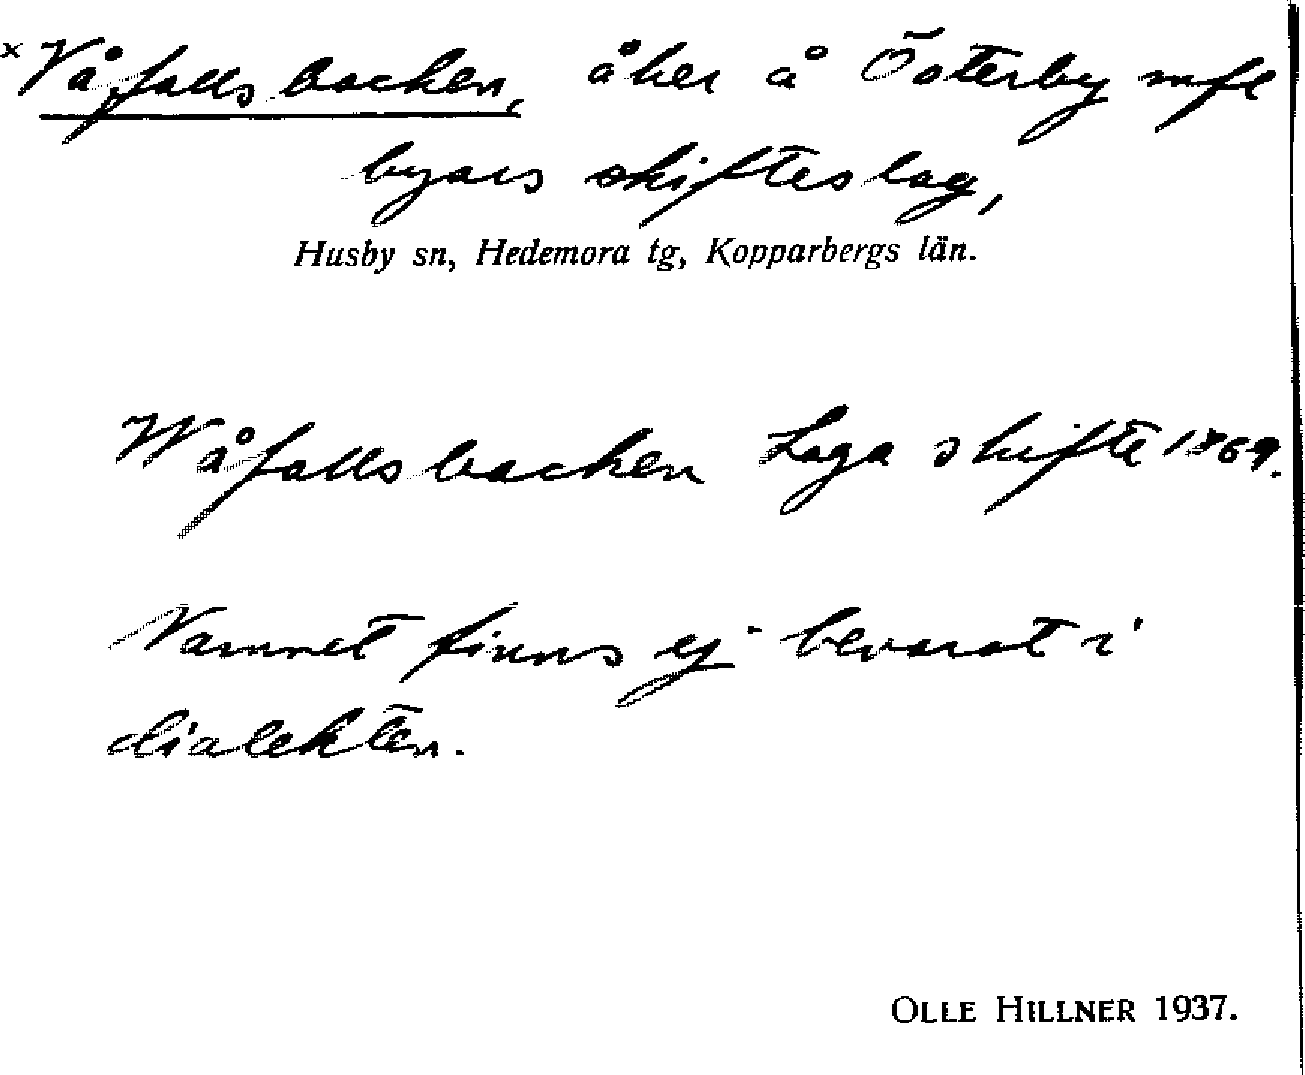 x Våfallsbacken, åker å Österby mfl
byars skifteslag,
Husby sn, Hedemora tg, Kopparbergs län.
Wåfallsbacken Laga skifte 1869.
Namnet finns ej bevarat i
dialekten.
OLLE HILLNER 1937.